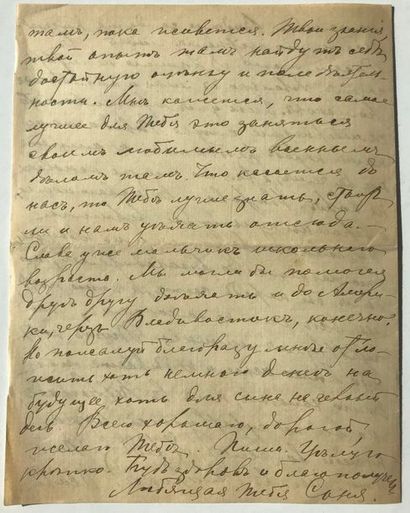 тамъ, пока живется. Твои знанія,
твой опытъ тамъ найдутъ себѣ
достойную оцѣнку и поле дѣятель
ность. Мнѣ кажется, что самое
лучшее для Тебя это заняться
своимъ любимымъ военнымъ
дѣломъ тамъ. Что касается до
насъ, то Тебѣ лучше знать, стоитъ
ли и намъ уѣзжать отсюда. —
Слава уже мальчикъ школьнаго
возраста. Мы могли бы помогая
другъ другу доѣхать и до Амери
ки, черезъ Владивостокъ, конечно,
но пожалуй благоразумнѣе отло
жить хоть немного денегъ на
будущее хоть для сына на черный
день Всего хорошаго, дорогой,
желаю Тебѣ. Пиши. Цѣлую
крѣпко. Будь здоровъ и благополученъ
Любящая Тебя Соня.